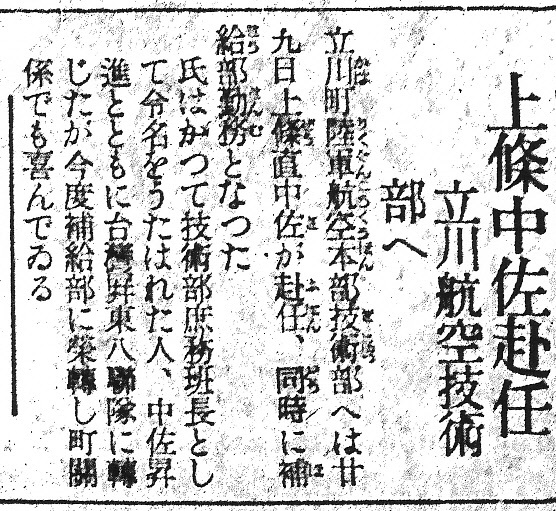 上條中佐赴任
立川航空技術
部へ
立川町陸軍航空本部技術部へは廿
九日上條直中佐が赴任、同時に補
給部勤務となつた
氏はかつて技術部庶務班長とし
て令名をうたはれた人、中佐昇
進とともに台灣屏東八聯隊に轉
じたが今度補給部に榮轉し町關
係でも喜んでゐる